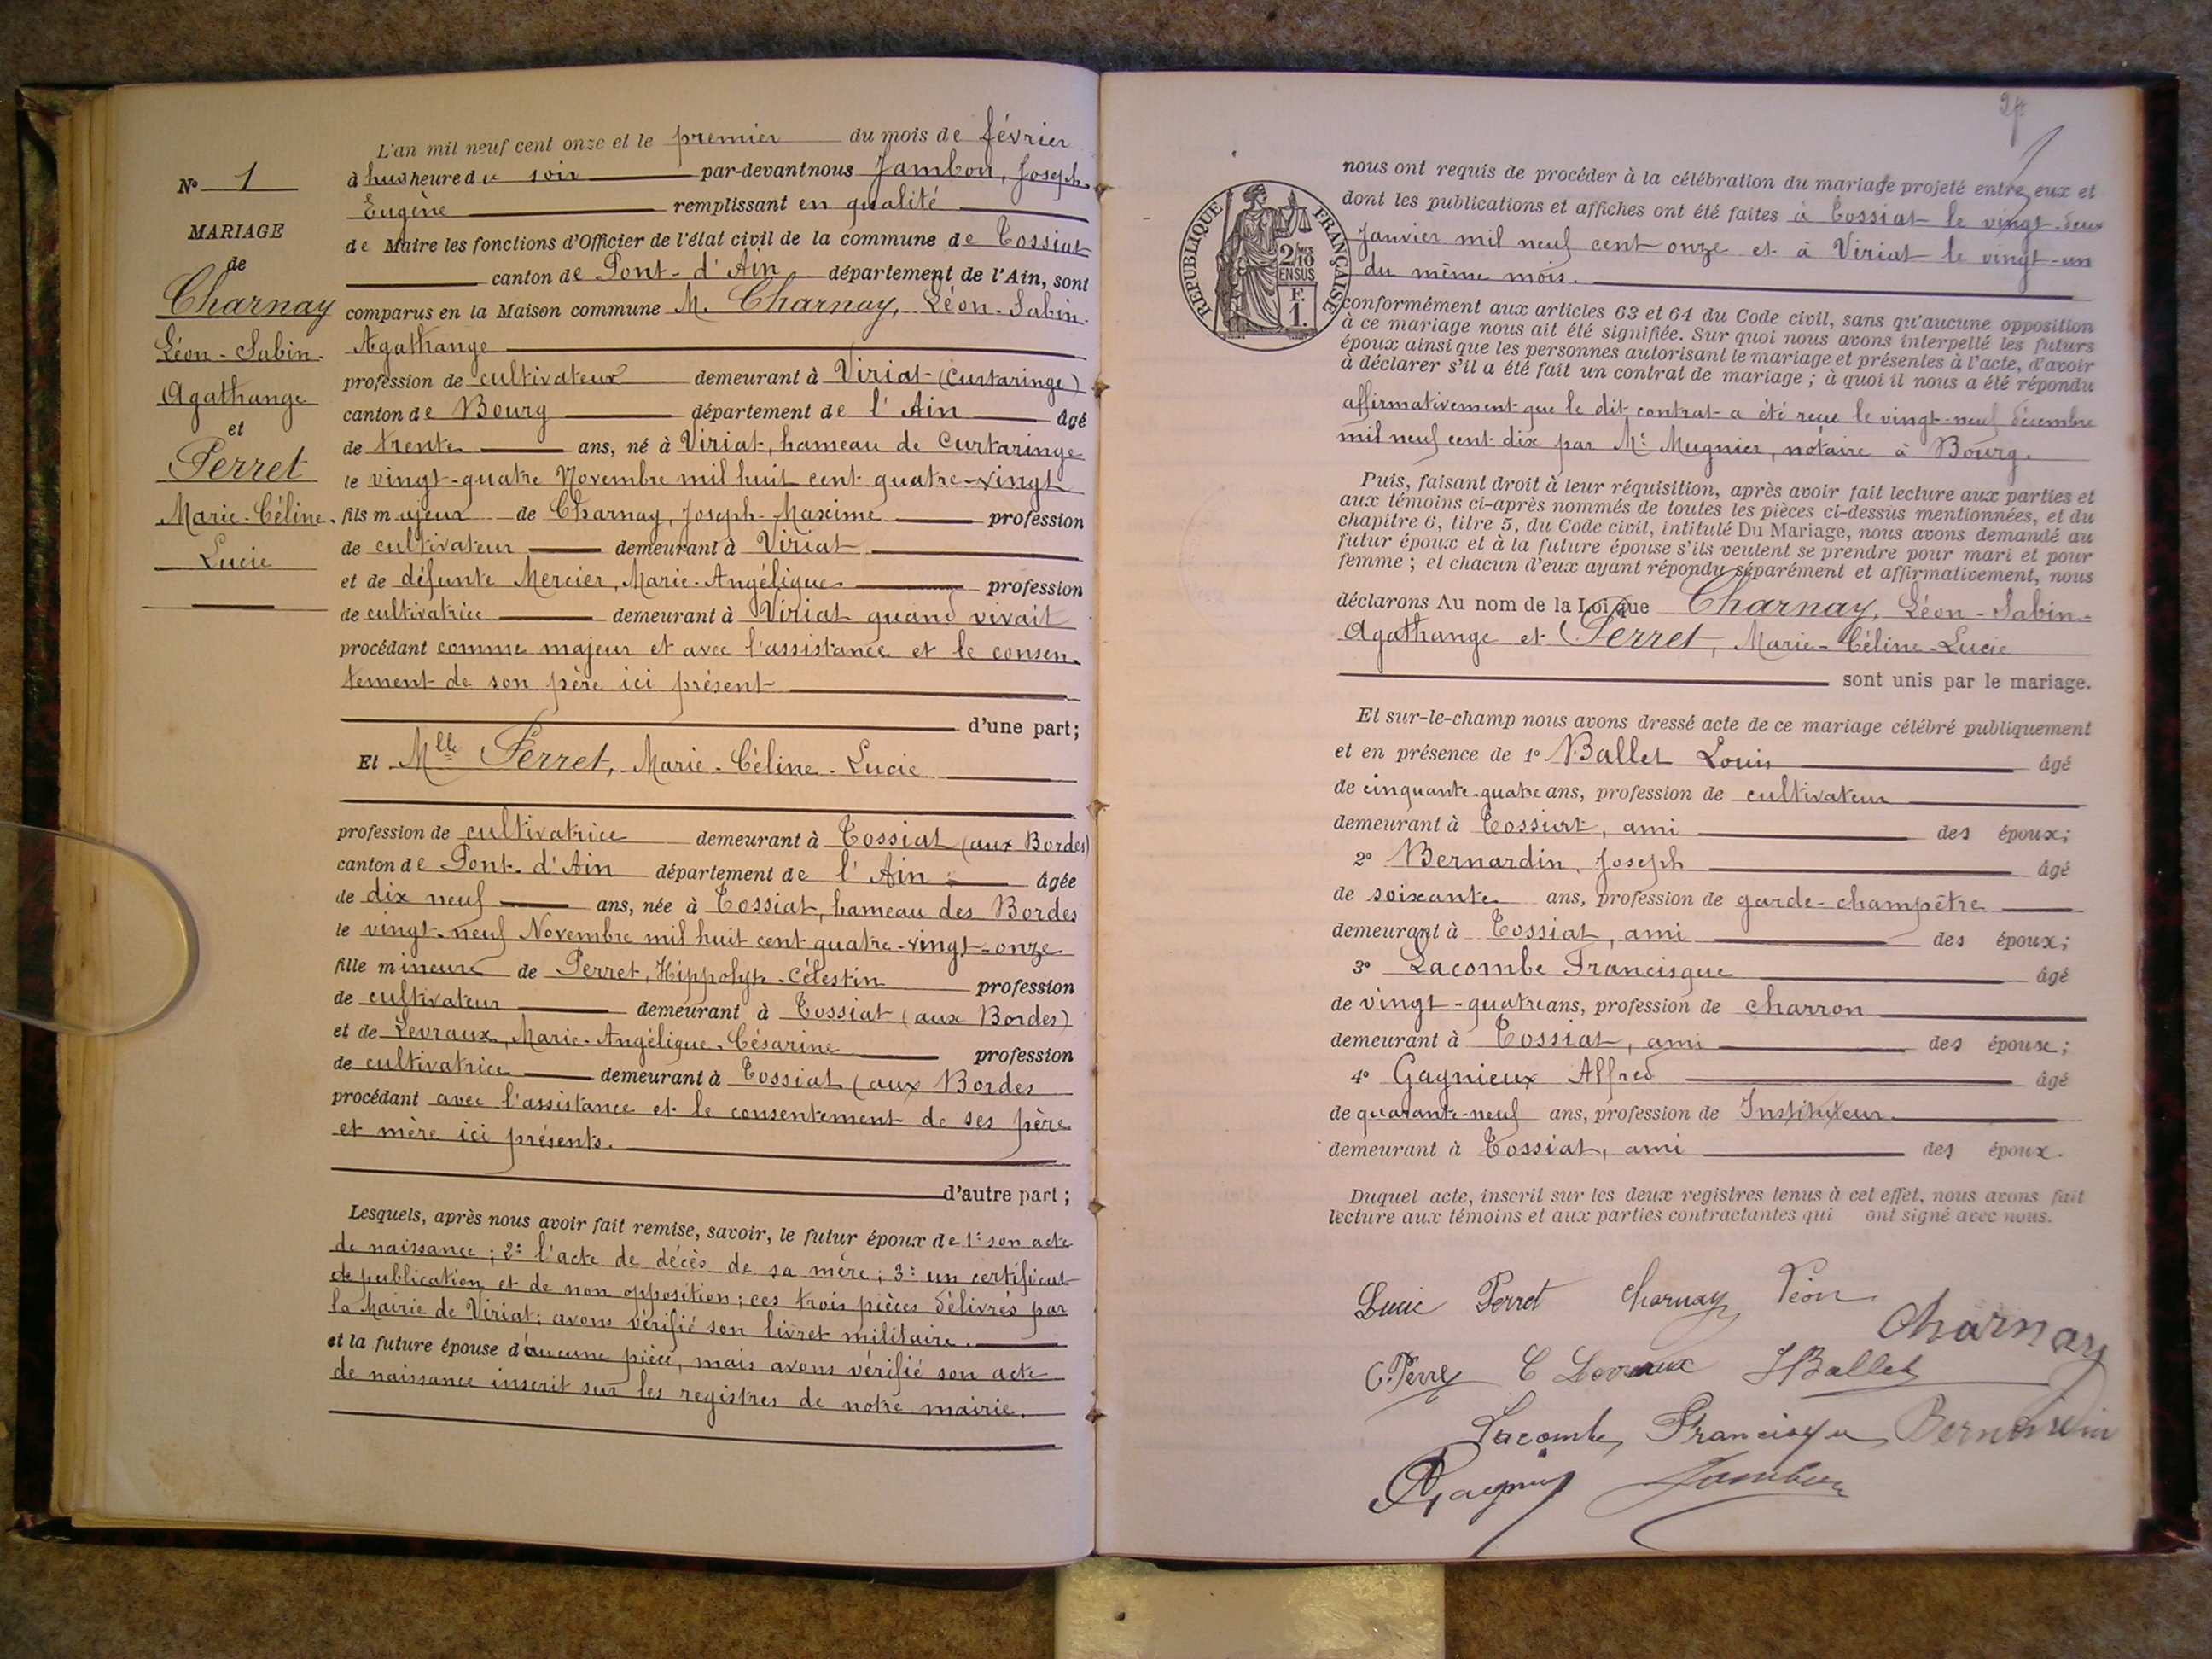 N° 1
MARIAGE
de
Charnay
Léon-Sabin-
Agathange
et
Perret
Marie-Céline-
Lucie
L'an mil neuf cent onze et le premier du mois de février
à heure du soir par-devant nous Jambon, Joseph
Eugène remplissant en qualité
de Maire les fonctions d'Officier de l'état civil de la commune de Tossiat
canton de Pont-d'Ain département de l'Ain, sont
comparus en la Maison commune M. Charnay, Léon-Sabin-
Agathange
profession de cultivateur demeurant à Viriat (Curtaringe)
canton de Bourg département de l'Ain âgé
de trente ans, né à Viriat, hameau de Curtaringe
le vingt-quatre Novembre mil huit cent quatre-vingt
fils majeur de Charnay, Joseph-Maxime profession
de cultivateur demeurant à Viriat
et de défunte Mercier, Marie-Angélique profession
de cultivatrice demeurant à Viriat quand vivait
procédant comme majeur et avec l'assistance et le consen-
tement de son père ici présent
d'une part;
Et Mlle Perret, Marie-Céline-Lucie
profession de cultivatrice demeurant à Tossiat (aux Bordes)
canton de Pont-d'Ain département de l'Ain âgée
de dix neuf ans, née à Tossiat, hameau des Bordes
le vingt-neuf Novembre mil huit cent quatre-vingt-onze
fille mineure de Perret, Hippolyte-Célestin profession
de cultivateur demeurant à Tossiat (aux Bordes)
et de Levraux, Marie-Angélique-Césarine profession
de cultivatrice demeurant à Tossiat (aux Bordes
procédant avec l'assistance et le consentement de ses père
et mère ici présents.
d'autre part;
Lesquels, après nous avoir fait remise, savoir, le futur époux de 1° son acte
de naissance; 2° l'acte de décès de sa mère; 3° un certificat
de publication et de non opposition; ces trois pièces délivrés par
la Mairie de Viriat; avons vérifié son livret militaire.
et la future épouse d'aucune pièce, mais avons vérifié son acte
de naissance inscrit sur les registres de notre mairie.
RÉPUBLIQUE FRANÇAISE
2/10 EN SUS
F. 1.
nous ont requis de procéder à la célébration du mariage projeté entre eux et
dont les publications et affiches ont été faites à Tossiat le vingt-deux
Janvier mil neuf cent onze et à Viriat le vingt-un
du même mois.
conformément aux articles 63 et 64 du Code civil, sans qu'aucune opposition
à ce mariage nous ait été signifiée. Sur quoi nous avons interpellé les futurs
époux ainsi que les personnes autorisant le mariage et présentes à l'acte, d'avoir
à déclarer s'il a été fait un contrat de mariage; à quoi il nous a été répondu
affirmativement que le dit contrat a été reçu le vingt-neuf décembre
mil neuf cent dix par Me Mugnier, notaire à Bourg.
Puis, faisant droit à leur réquisition, après avoir fait lecture aux parties et
aux témoins ci-après nommés de toutes les pièces ci-dessus mentionnées, et du
chapitre 6, titre 5, du Code civil, intitulé Du Mariage, nous avons demandé au
futur époux et à la future épouse s'ils veulent se prendre pour mari et pour
femme; et chacun d'eux ayant répondu séparément et affirmativement, nous
déclarons Au nom de la Loi que Charnay, Léon-Sabin-
Agathange et Perret, Marie-Céline-Lucie
sont unis par le mariage.
Et sur-le-champ nous avons dressé acte de ce mariage célébré publiquement
et en présence de 1° Ballet Louis âgé
de cinquante-quatre ans, profession de cultivateur
demeurant à Tossiat, ami des époux;
2° Bernardin, Joseph âgé
de soixante ans, profession de garde-champêtre
demeurant à Tossiat, ami des époux;
3° Lacombe Francisque âgé
de vingt-quatre ans, profession de charron
demeurant à Tossiat, ami des époux;
4° Gagnieux Alfred âgé
de quarante-neuf ans, profession de Instituteur
demeurant à Tossiat, ami des époux.
Duquel acte, inscrit sur les deux registres tenus à cet effet, nous avons fait
lecture aux témoins et aux parties contractantes qui ont signé avec nous.
Lucie Perret Charnay Léon
Charnay
C Levraux Ballet
Lacombe Francisque Bernardin
Jambon